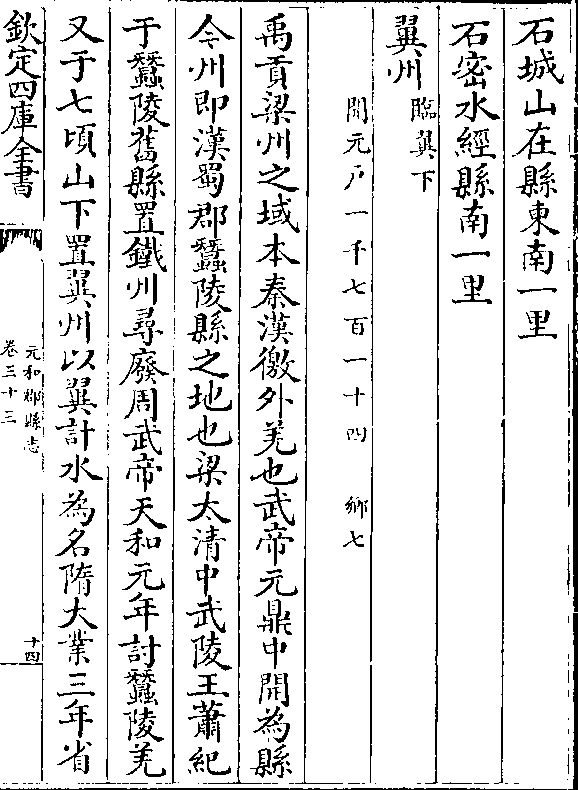 石城山在縣東南一里
石密水經縣南一里
翼州臨翼下
開元戸一千七百一十四　鄉七
禹貢梁州之域本秦漢徼外羌也武帝元鼎中開為縣
今州即漢蜀郡蠶陵縣之地也梁太清中武陵王蕭紀
于蠶陵舊縣置鐵州尋廢周武帝天和元年討蠶陵羌
又于七頃山下置翼州以翼計水為名隋大業三年省
欽定四庫全書
元和郡縣志
卷三十三
十四